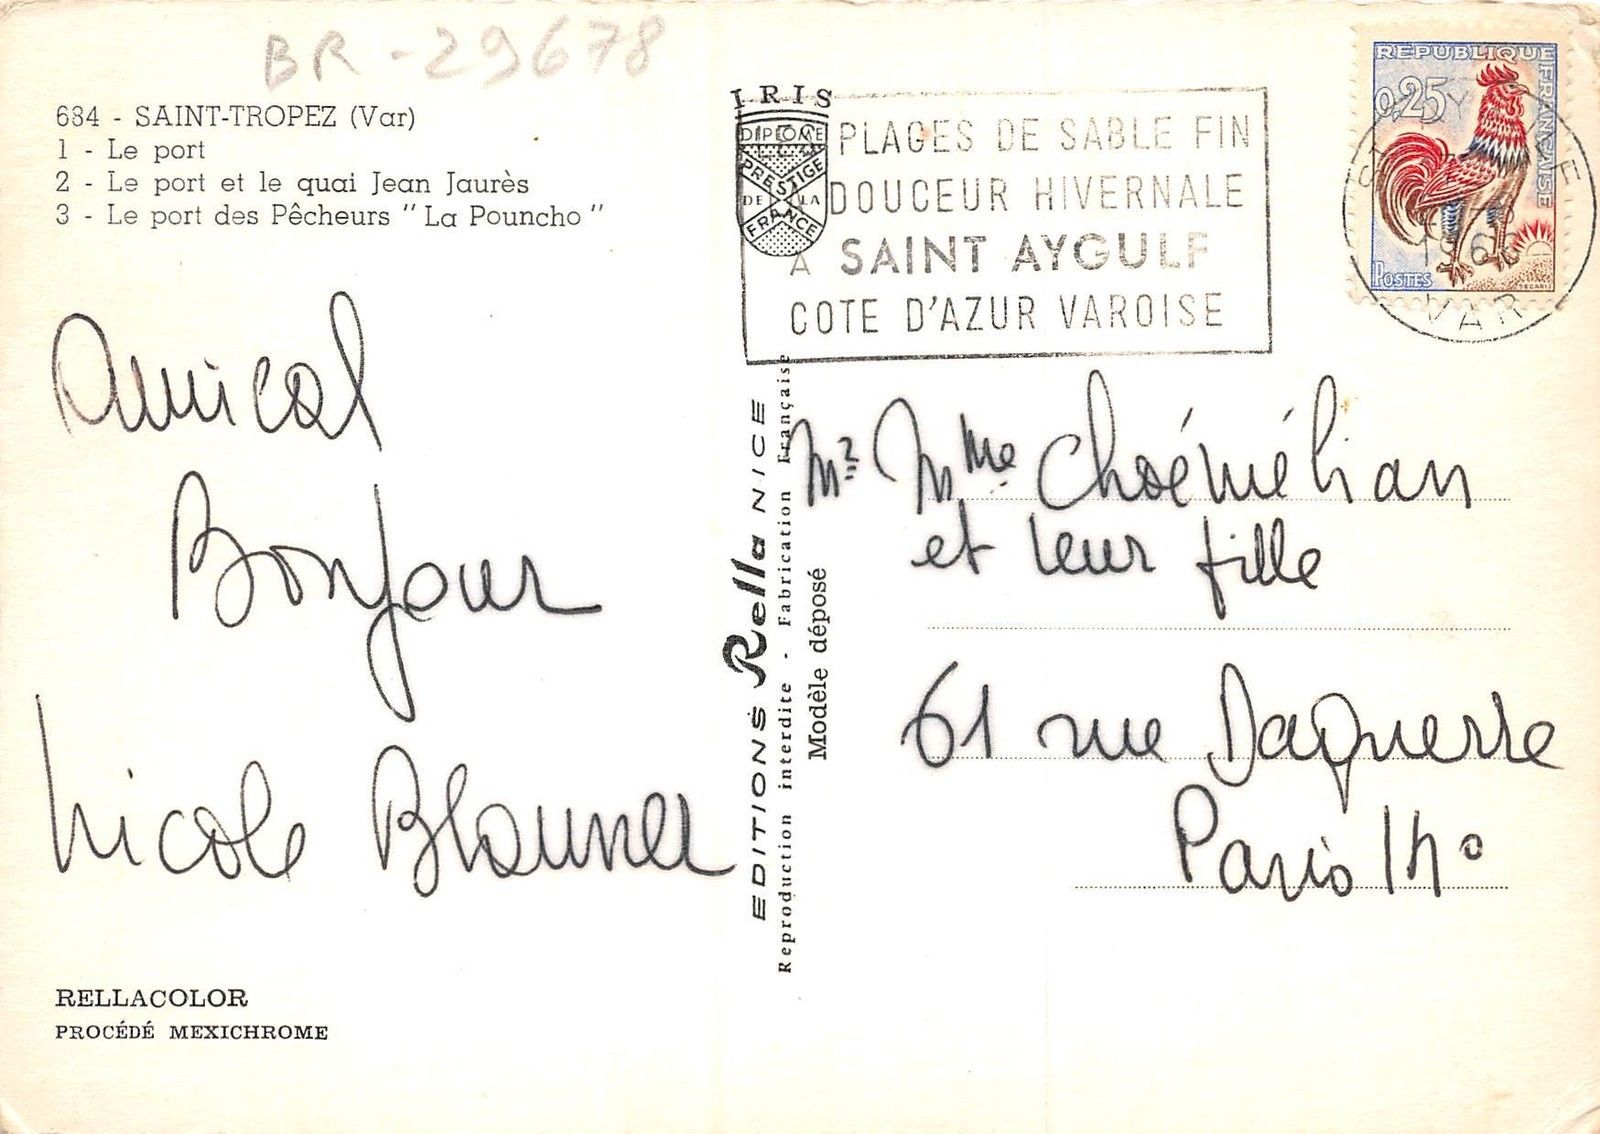 BR-29678
634 - SAINT-TROPEZ (Var)
1 - Le port
2 - Le port et le quai Jean Jaurès
3 - Le port des Pêcheurs "La Pouncho"
Amical
Bonjour
Nicole
RELLACOLOR
PROCÉDÉ MEXICHROME
EDITIONS Rella NICE
Reproduction interdite - Fabrication Française
Modèle déposé
IRIS
DIPLOME
PRESTIGE
DE LA
FRANCE
PLAGES DE SABLE FIN
DOUCEUR HIVERNALE
A SAINT AYGULF
COTE D'AZUR VAROISE
REPUBLIQUE
FRANÇAISE
0,25
POSTES
DECARIS
VAR
Mr Mme Choémélian
et leur fille
61 rue Daguerre
Paris 14°